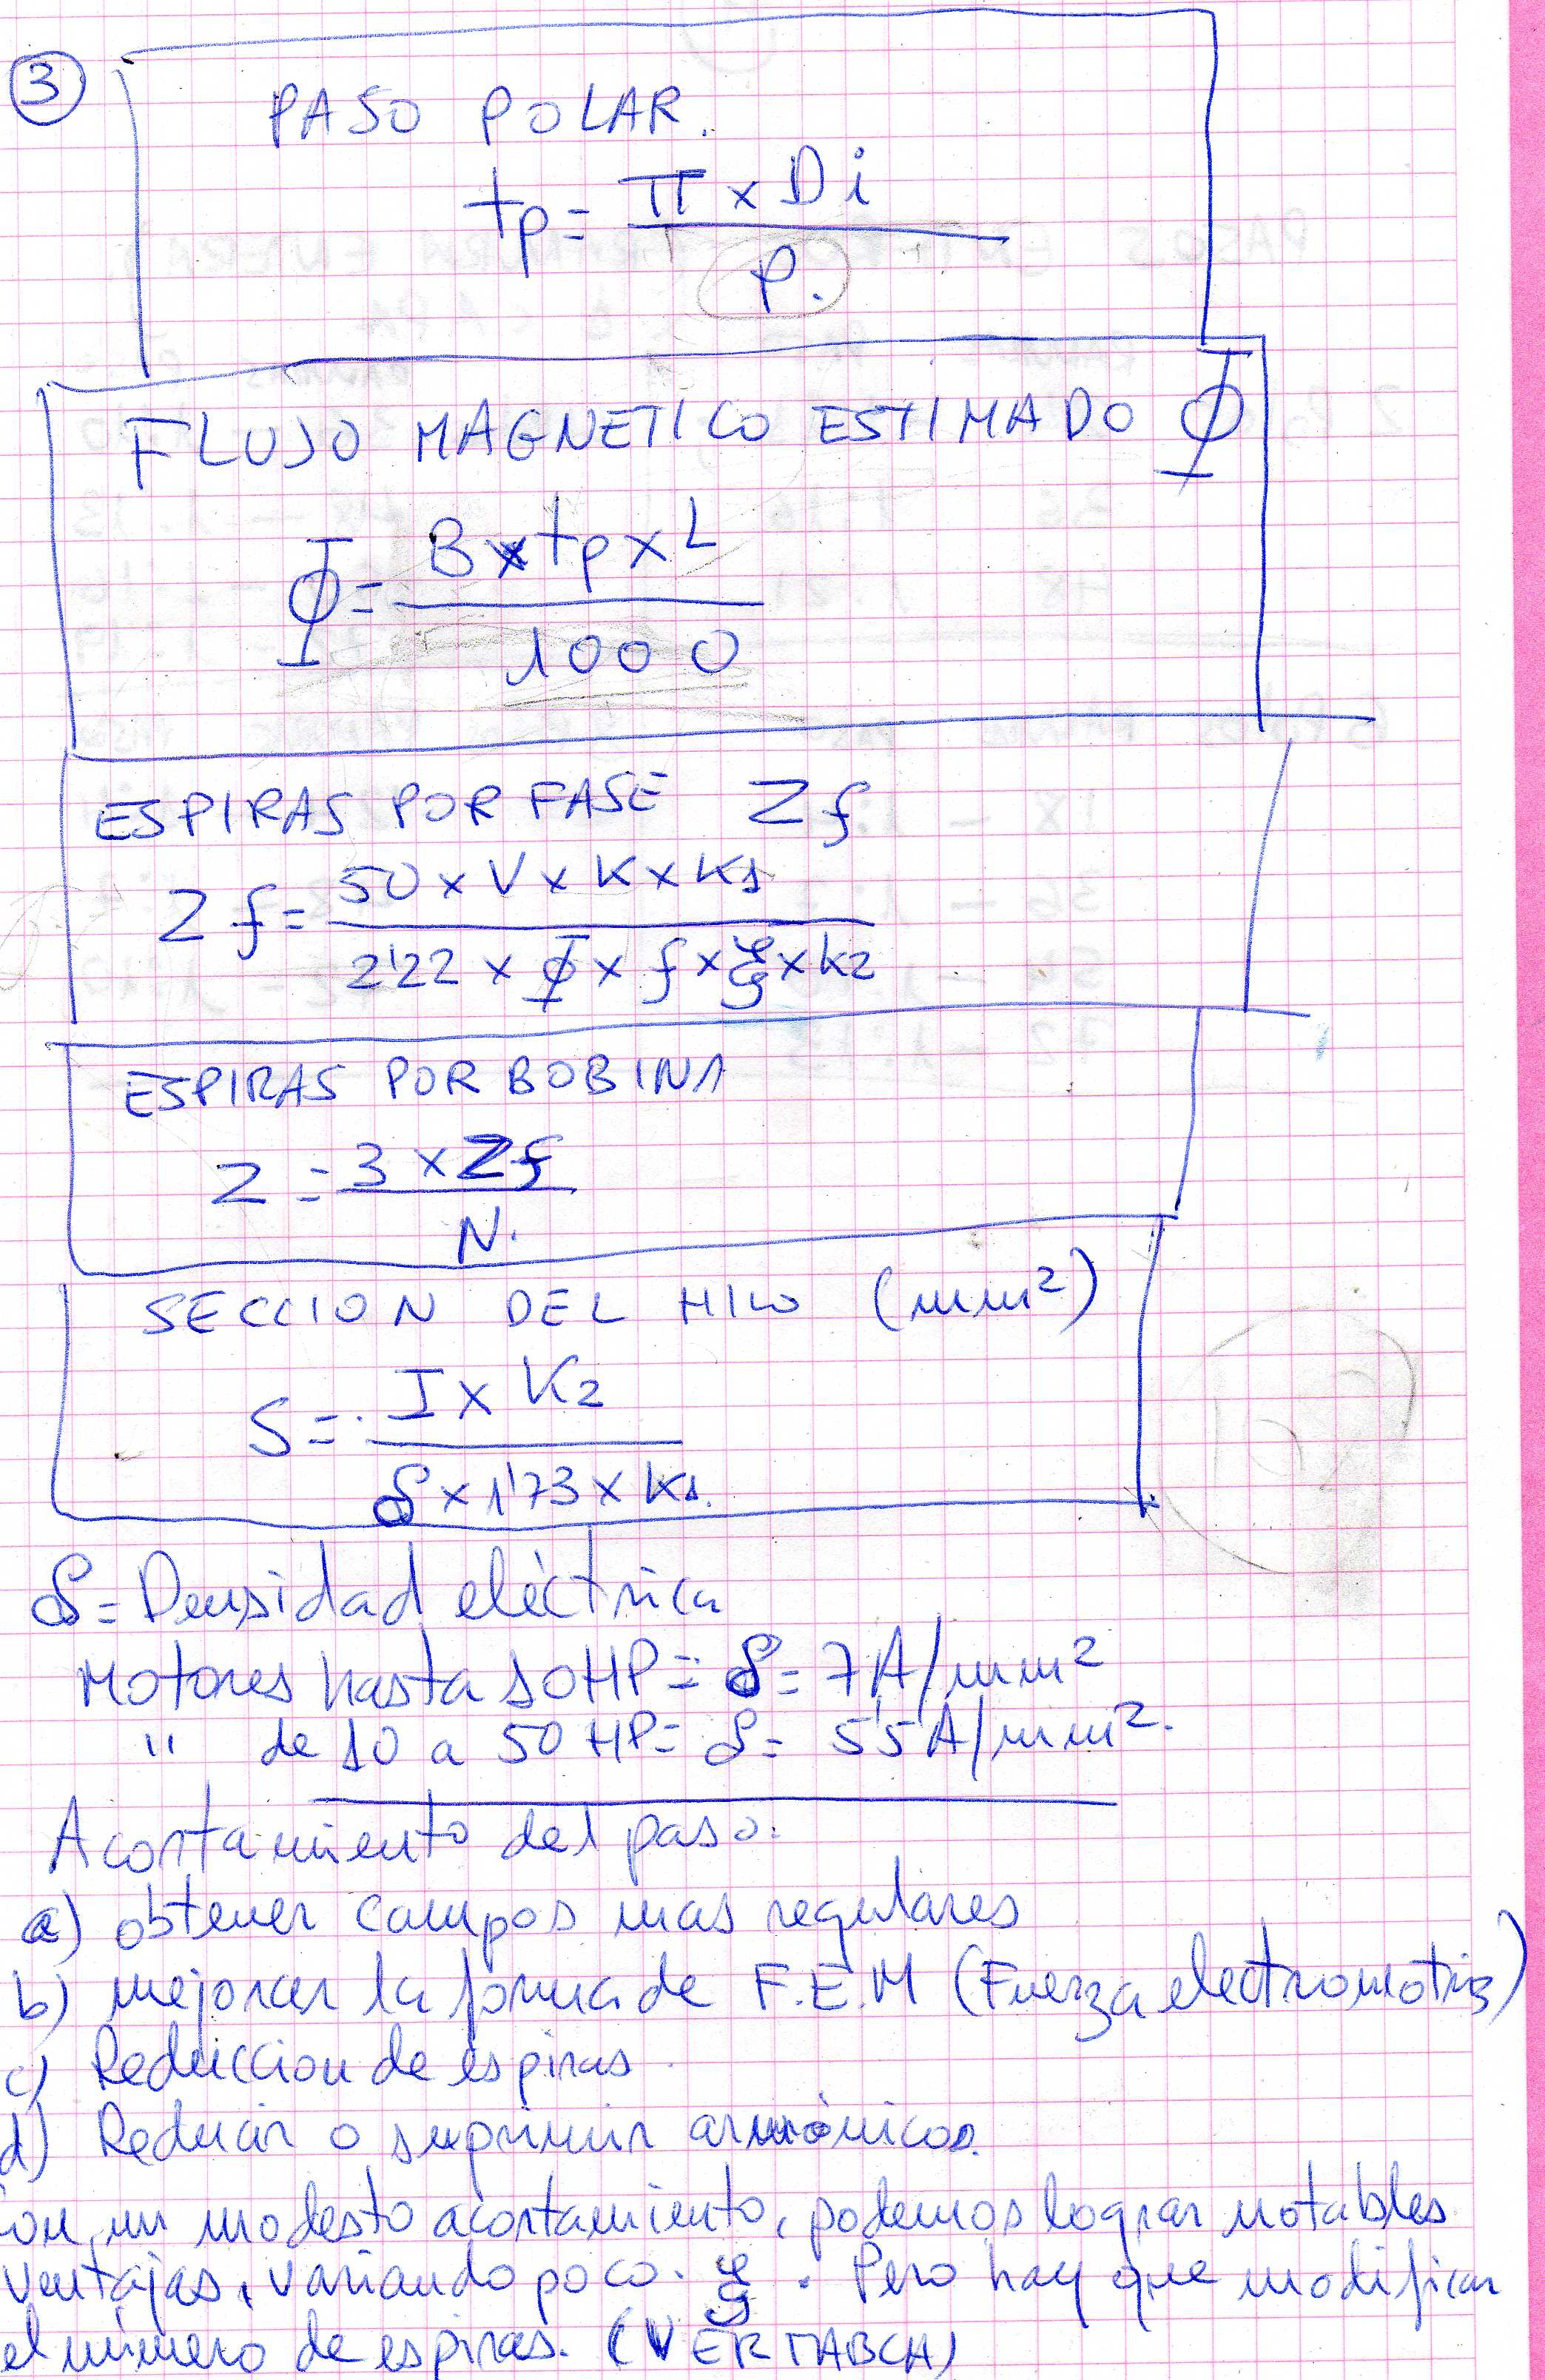 3
PASO POLAR.
tp = π x Di / P.
FLUJO MAGNETICO ESTIMADO Φ
Φ = B x tp x L / 1000
ESPIRAS POR FASE Zf
Zf = 50 x V x K x K1 / 2'22 x Φ x f x ξ x K2
ESPIRAS POR BOBINA
Z = 3 x Zf / N.
SECCION DEL HILO (mm²)
S = I x K2 / δ x 1'73 x K1.
δ = Densidad eléctrica
Motores hasta 10HP = δ = 7A/mm²
" de 10 a 50 HP = δ = 5'5A/mm².
Acortamiento del paso.
a) obtener campos mas regulares
b) mejorar la forma de F.E.M (Fuerza electromotriz)
c) Reduccion de espiras.
d) Reducir o suprimir armónicos.
con un modesto acortamiento, podemos lograr notables
ventajas, variando poco. ξ. Pero hay que modificar
el número de espiras. (VER TABLA)